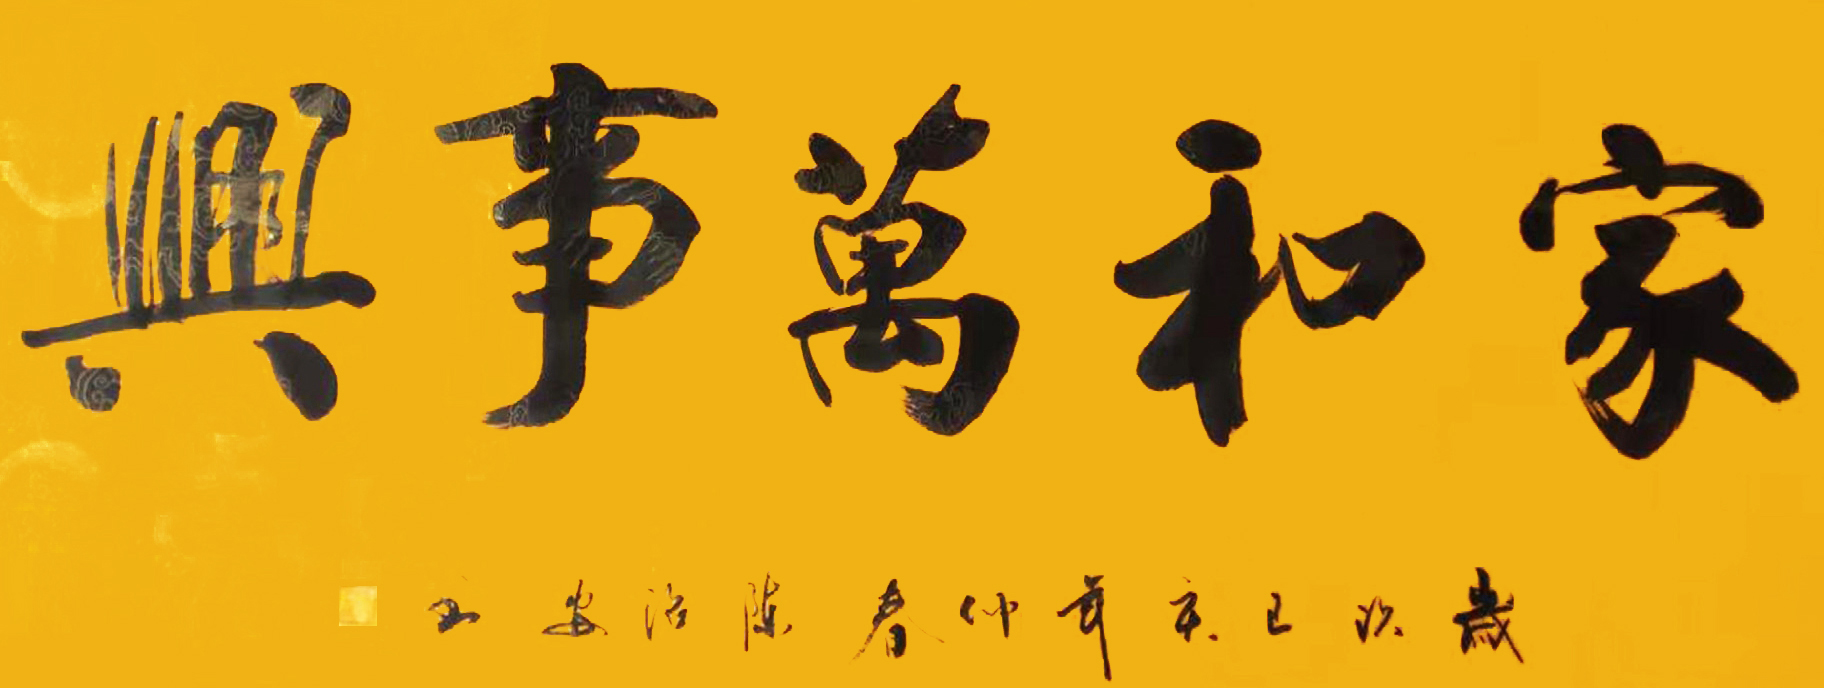 家和萬事興
歲次己亥年仲春陈治安书